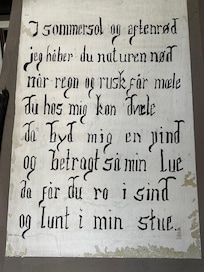 I sommersol og aftenrød
jeg håber du naturen nød
når regn og rusk får mæle
du hos mig kan dvæle
da byd mig en pind
og betragt så min Lue
da får du ro i sind
og lunt i min stue.